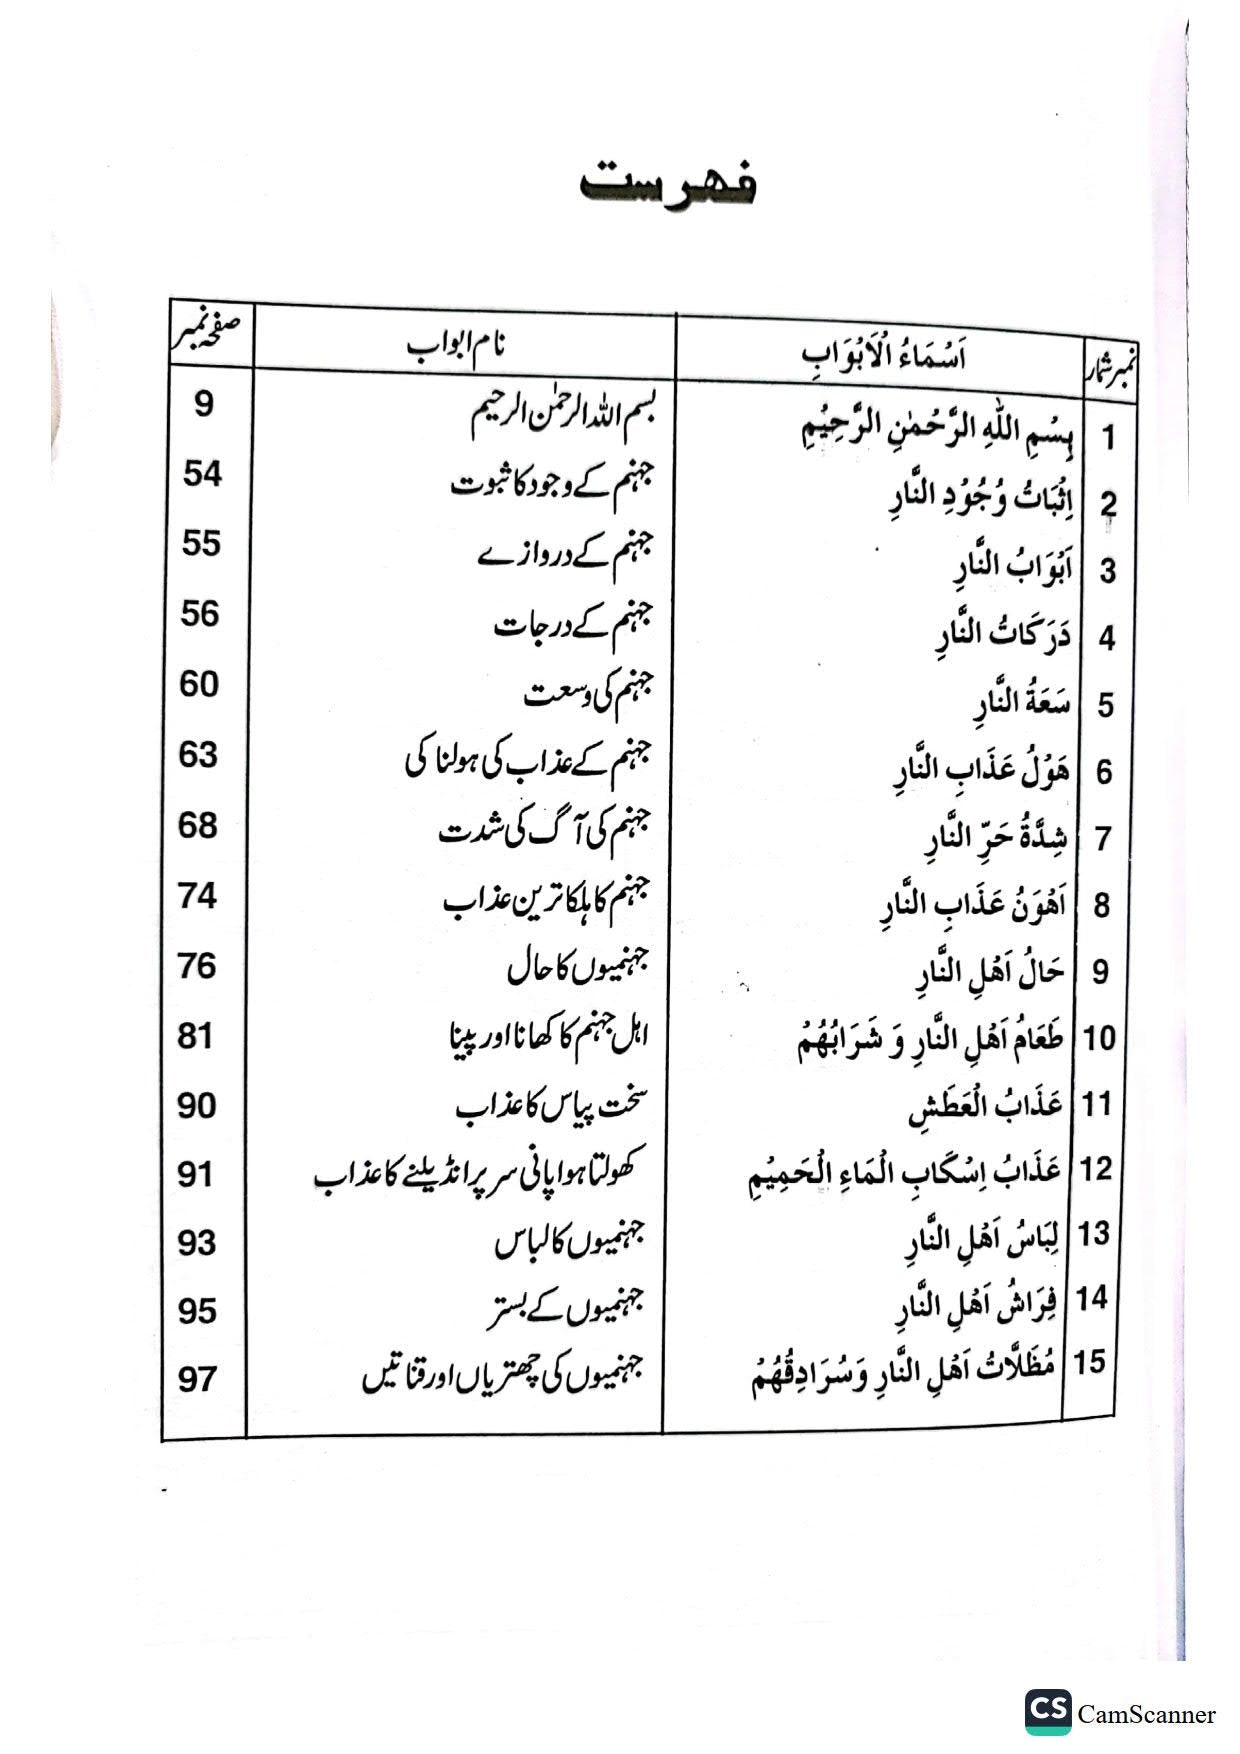 فہرست
نمبر شمار اَسْمَاءُ الْاَبْوَابِ نام ابواب صفحہ نمبر
1 بِسْمِ اللّٰهِ الرَّحْمٰنِ الرَّحِيْمِ بسم اللہ الرحمٰن الرحیم 9
2 اِثْبَاتُ وُجُوْدِ النَّارِ جہنم کے وجود کا ثبوت 54
3 اَبْوَابُ النَّارِ جہنم کے دروازے 55
4 دَرَكَاتُ النَّارِ جہنم کے درجات 56
5 سَعَةُ النَّارِ جہنم کی وسعت 60
6 هَوْلُ عَذَابِ النَّارِ جہنم کے عذاب کی ہولناکی 63
7 شِدَّةُ حَرِّ النَّارِ جہنم کی آگ کی شدت 68
8 اَهْوَنُ عَذَابِ النَّارِ جہنم کا ہلکا ترین عذاب 74
9 حَالُ اَهْلِ النَّارِ جہنمیوں کا حال 76
10 طَعَامُ اَهْلِ النَّارِ وَ شَرَابُهُمْ اہل جہنم کا کھانا اور پینا 81
11 عَذَابُ الْعَطَشِ سخت پیاس کا عذاب 90
12 عَذَابُ اِسْكَابِ الْمَاءِ الْحَمِيْمِ کھولتا ہوا پانی سر پر انڈیلنے کا عذاب 91
13 لِبَاسُ اَهْلِ النَّارِ جہنمیوں کا لباس 93
14 فِرَاشُ اَهْلِ النَّارِ جہنمیوں کے بستر 95
15 مُظَلَّاتُ اَهْلِ النَّارِ وَسُرَادِقُهُمْ جہنمیوں کی چھتریاں اور قناتیں 97
CS CamScanner